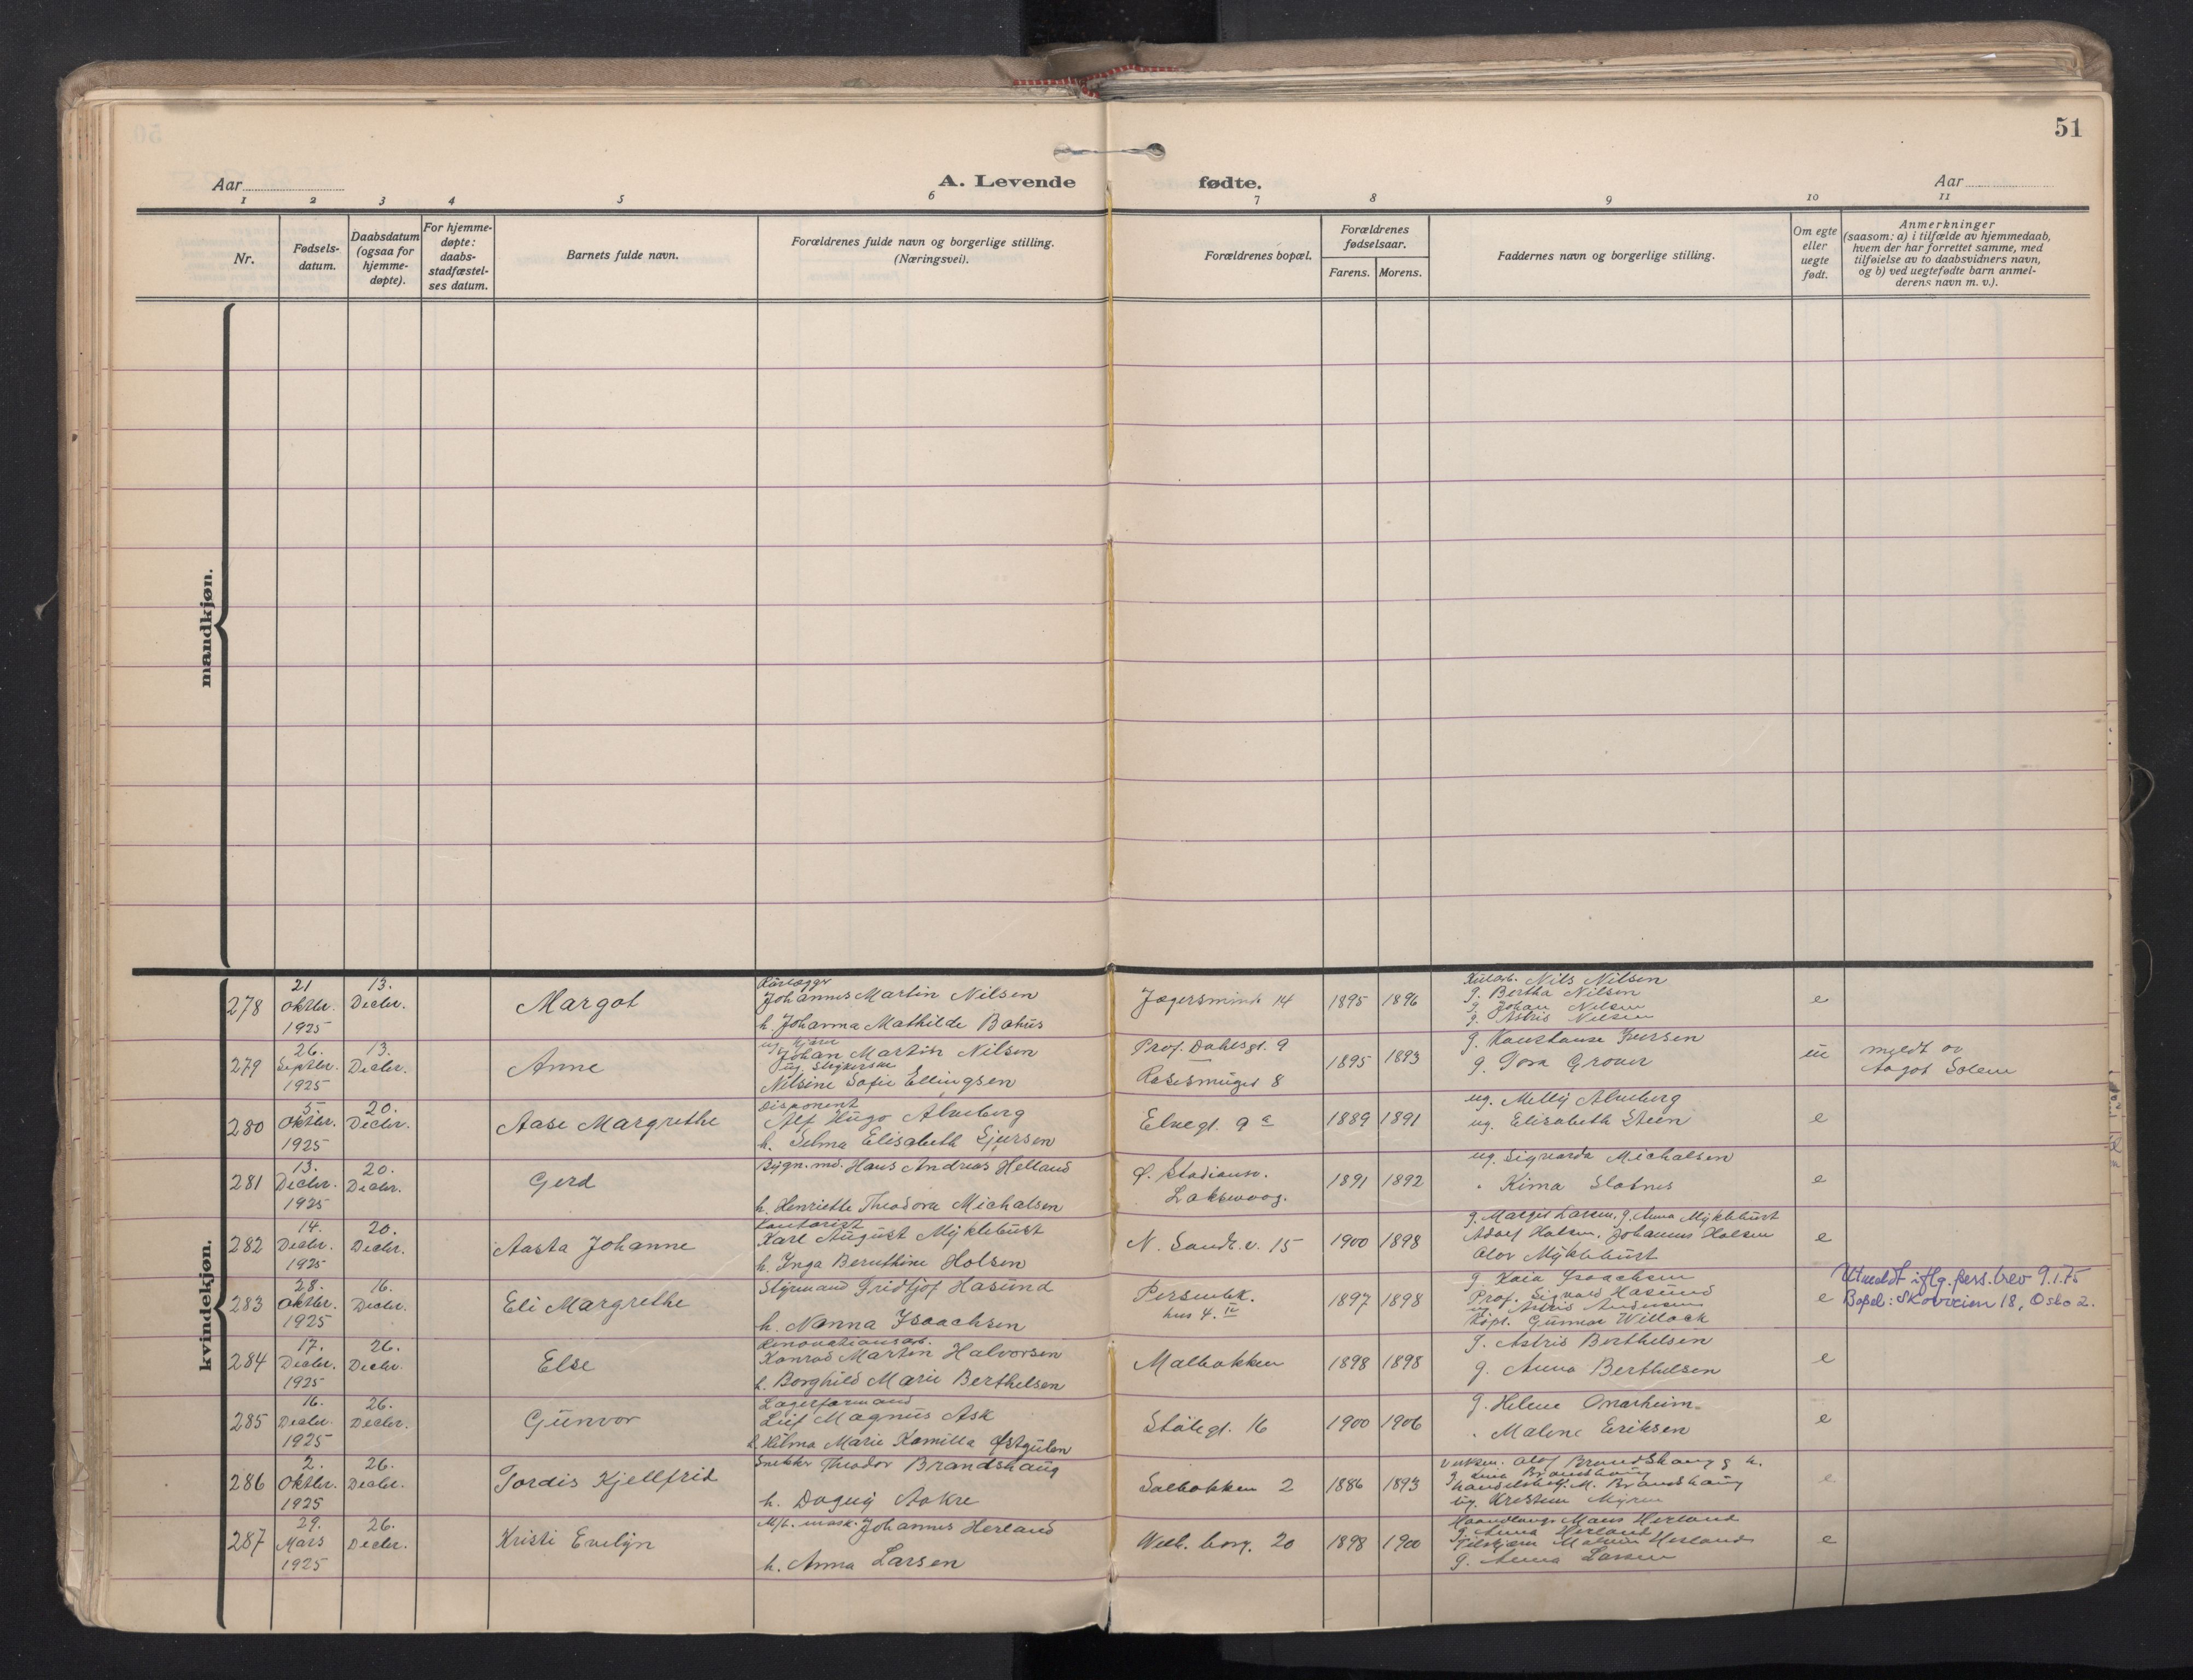 51
Aar
A. Levende fødte.
Aar
1 2 3 4 5 6 7 8 9 10 11
Nr.
Fødsels-
datum.
Daabsdatum
(ogsaa for
hjemme-
døpte).
For hjemme-
døpte:
daabs-
stadfæstel-
ses datum.
Barnets fulde navn.
Forældrenes fulde navn og borgerlige stilling.
(Næringsvei).
Forældrenes bopæl.
Forældrenes
fødselsaar.
Farens. Morens.
Faddernes navn og borgerlige stilling.
Om egte
eller
uegte
født.
Anmerkninger
(saasom: a) i tilfælde av hjemmedaab,
hvem der har forrettet samme, med
tilføielse av to daabsvidners navn,
og b) ved uegtefødte barn anmel-
derens navn m. v.).
mandkjøn.
kvindekjøn.
278
21
Oktbr.
1925
13.
Decbr.
Margot
Rørlægger
Johannes Martin Nilsen
h. Johanna Mathilde Bahus
14
1895 1896
Nils Nilsen
g. Bertha Nilsen
g. Johan Nilsen
g. Astris Nilsen
e
279
26.
Septbr.
1925
13.
Decbr.
Anne
Johan Martin Nilsen
Nilsine Sofie Ellingsen
Prof. Dahlsgt. 9
Rosesmuget 8
1895 1893
g. Konstanse Iversen
g. Tora Groner
ue
meldt av
Aagot Solem
280
5.
Oktbr.
1925
20.
Decbr.
Aase Margrethe
Disponent
Alf Hugo Almberg
h. Selma Elisabeth Sjursen
Elvegt. 9 a
1889 1891
ug. Melly Almberg
ug. Elisabeth Steen
e
281
13.
Decbr.
1925
20.
Decbr.
Gerd
Bygn. md. Hans Andreas Helland
h. Henriette Theodora Michalsen
Ø. Stadionv.
Laksevaag.
1891 1892
ug. Sigvarda Michalsen
" Kima Slotnes
e
282
14.
Decbr.
1925
20.
Decbr.
Aasta Johanne
Kontorist
Karl August Myklebust
h. Inga Bernthine Holsen
N. Sandv. v. 15
1900 1898
g. Margit Larsen, g. Anna Myklebust
Adolf Holsen, Johannes Holsen
Olav Myklebust
e
283
28.
Oktbr.
1925
16.
Decbr.
Eli Margrethe
Styrmand Fridtjof Hasund
h. Nanna Isaachsen
Persenbk.
hus 4. IV
1897 1898
g. Kaia Isaachsen
Prof. Sigvald Hasund
ug. Astris Andersen
Kapt. Gunnar Willoch
e
Utmeldt iflg. pers. brev 9.1.75
Bopel: Skovveien 18, Oslo 2.
284
17.
Decbr.
1925
26.
Decbr.
Else
Renovationsarb.
Konrad Martin Halvorsen
h. Borghild Marie Berthelsen
Malbakken
1898 1898
g. Astris Berthelsen
g. Anna Berthelsen
e
285
16.
Decbr.
1925
26.
Decbr.
Gunvor
Lagerformand
Leif Magnus Ask
h. Hilma Marie Kamilla Østgulen
Stølegt. 16
1900 1906
g. Helene Onarheim
" Malene Eriksen
e
286
2.
Oktbr.
1925
26.
Decbr.
Tordis Kjellfrid
Snekker Theodor Brandshaug
h. Dagny Aakre
Salbakken 2
1886 1893
Olaf Brandshaug g h.
g. Lina Brandshaug
handelsbetj. M. Brandshaug
ug. Kristine Myren
e
287
29.
Mars
1925
26.
Decbr.
Kristi Evelyn
M/t. mask. Johannes Herland
h. Anna Larsen
Welh. borg. 20
1898 1900
Haandlang. Mans Herland
g. Anna Herland
Malvin Herland
g. Anna Larsen
e